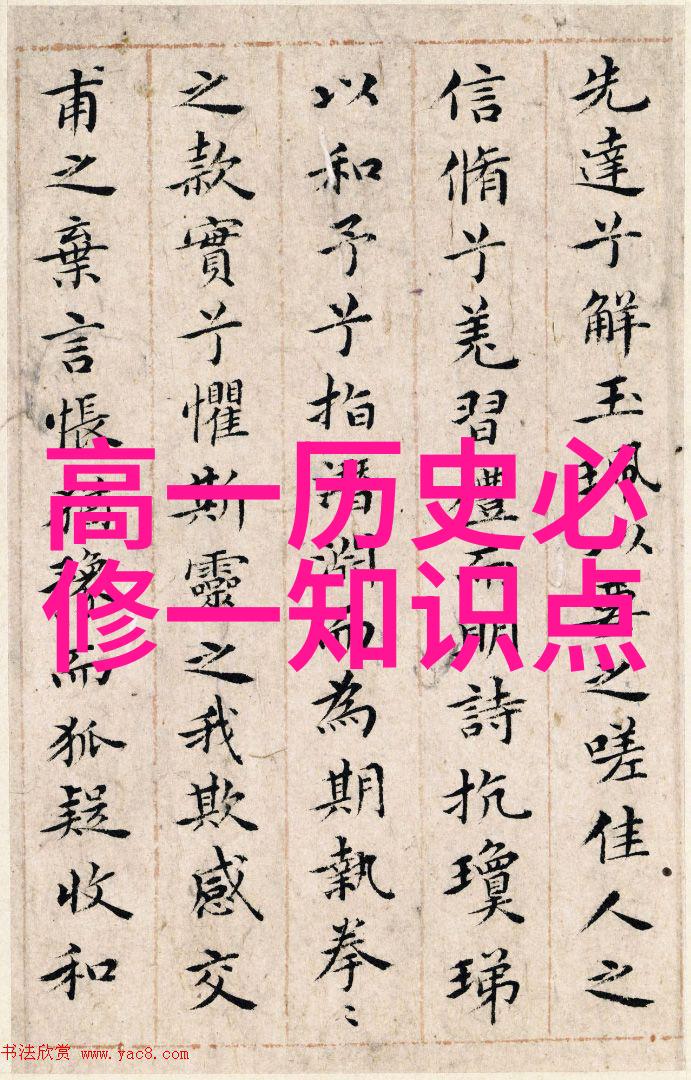 先達兮解玉珮以要之嗟佳人之
信脩兮羗習禮而明詩抗瓊珶
以和予兮指潛淵而為期執拳〻
之款實兮懼斯靈之我欺感交
甫之棄言悵猶豫而狐疑收和
高一历史必
修一知识点
书法欣赏 www.yac8.com